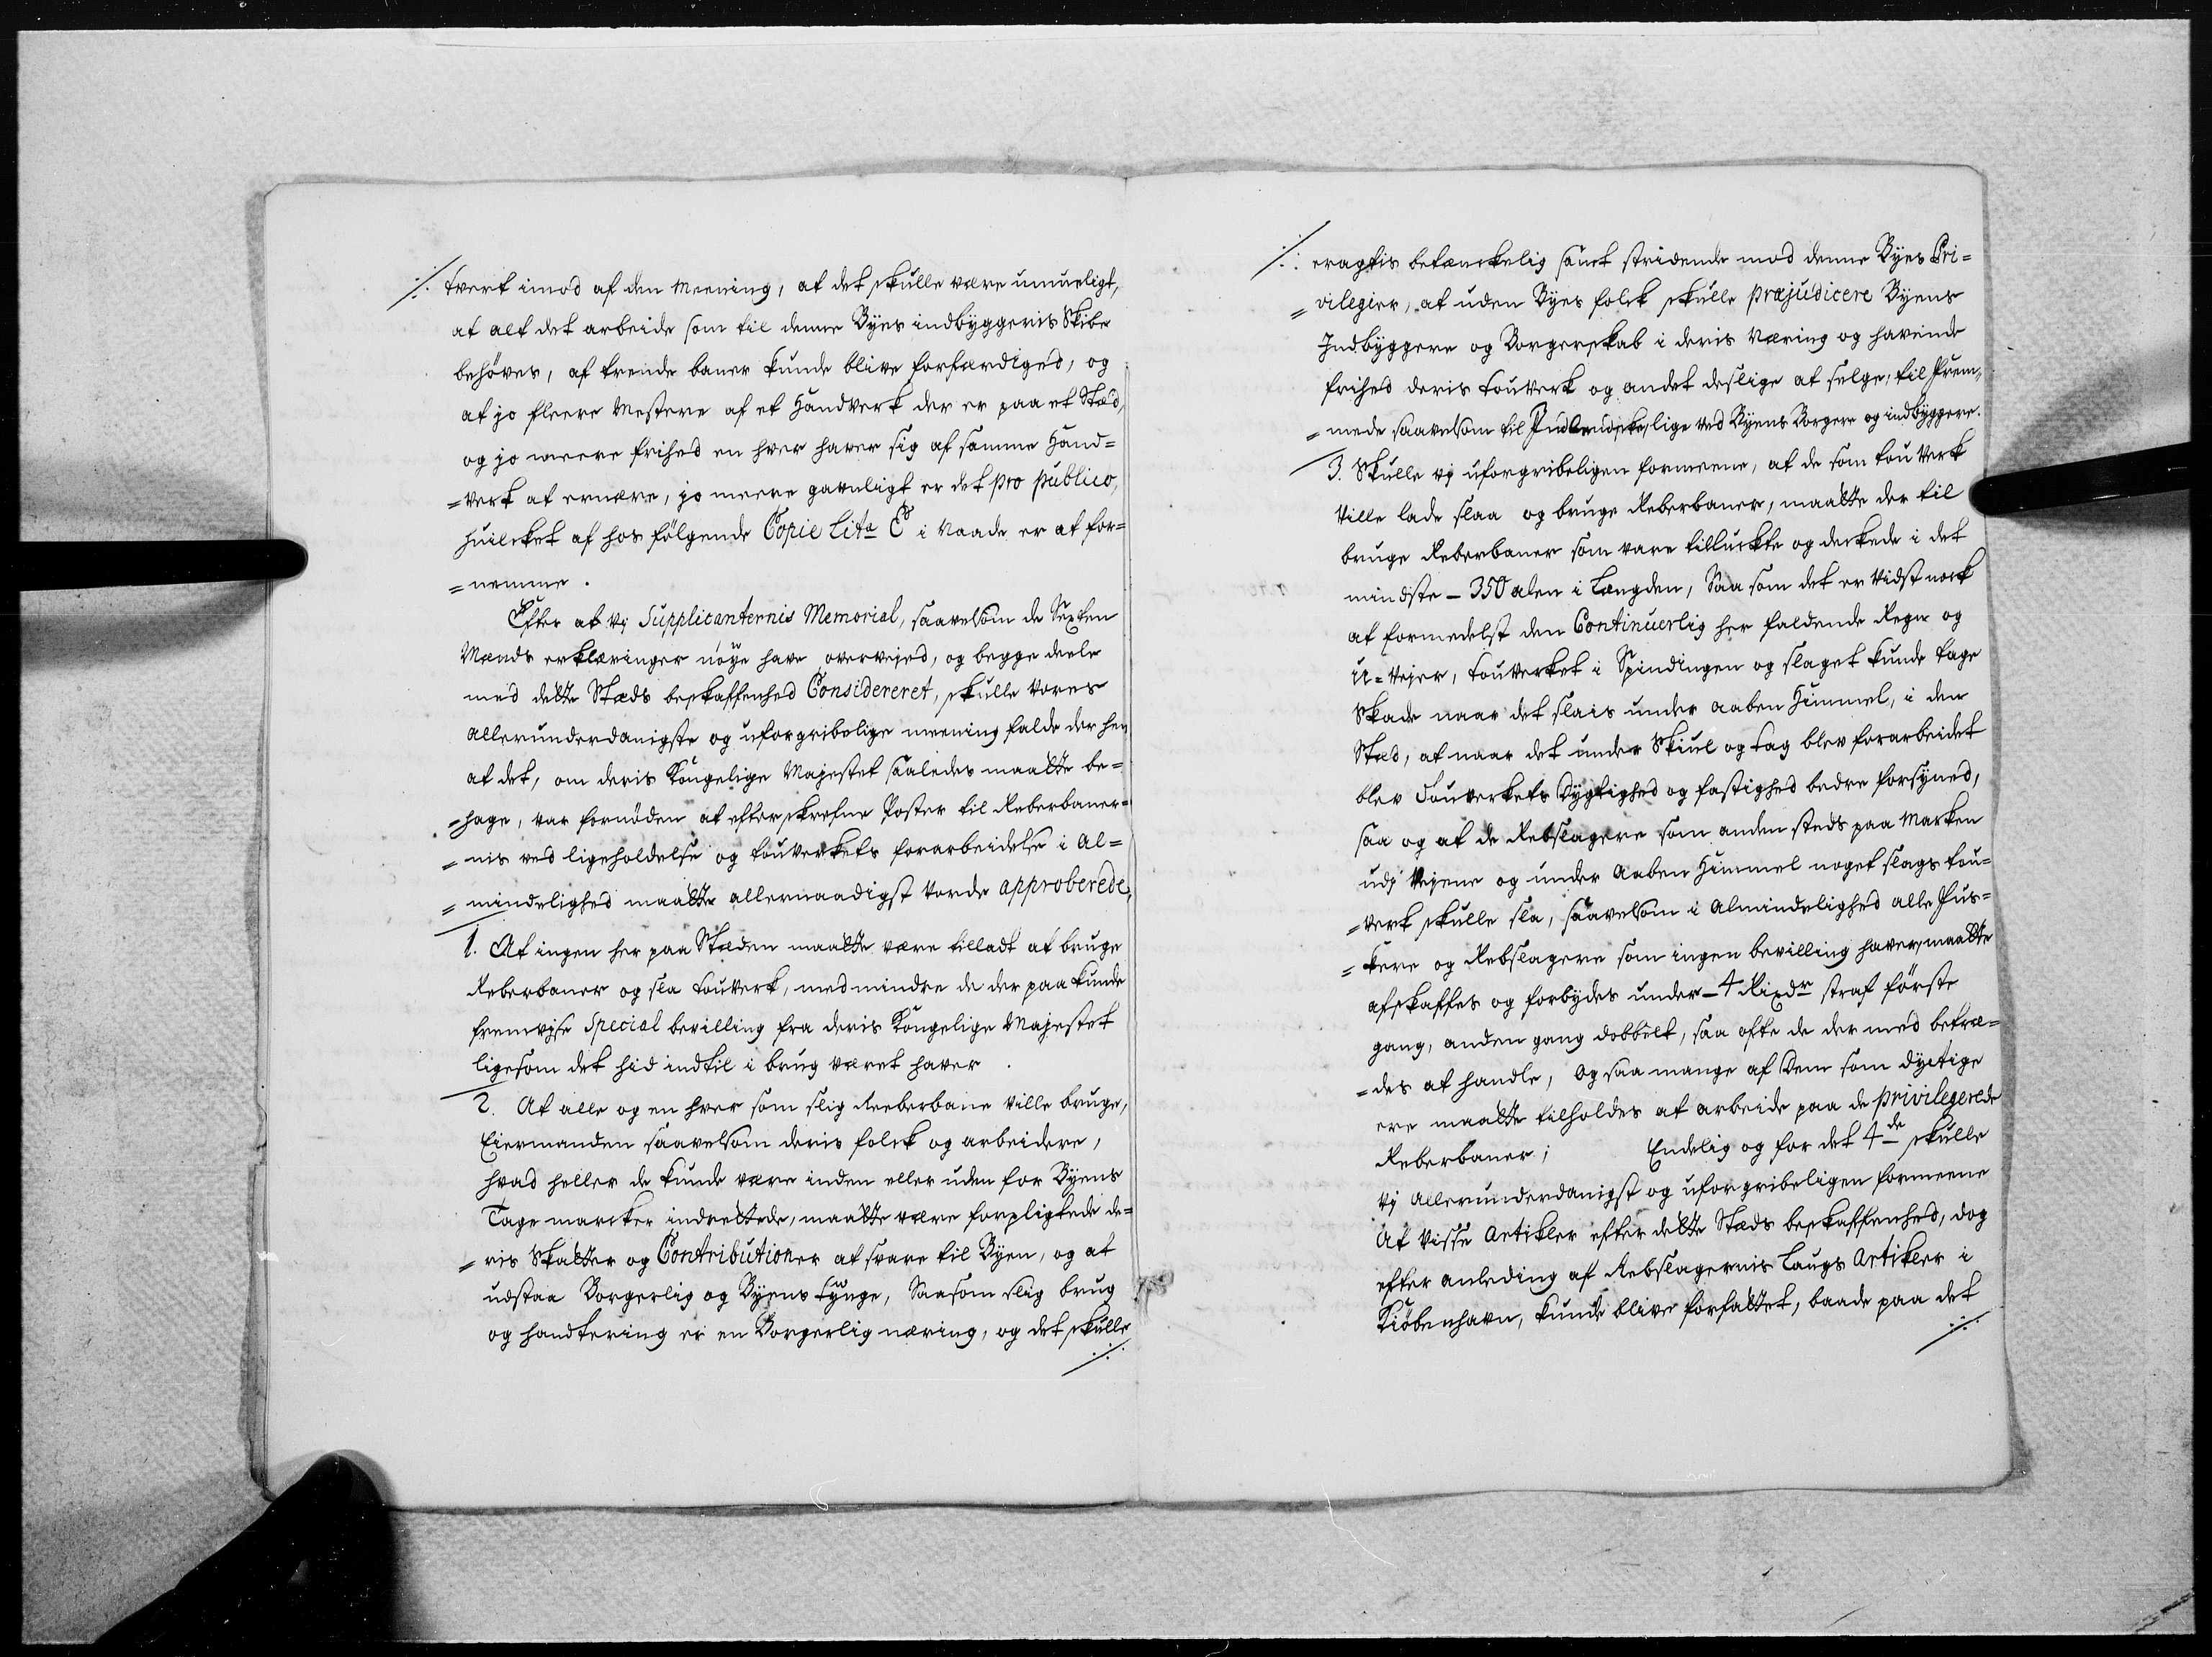 ⁒ tvert imod af den Meening, at det skulle være umueligt,
at alt det arbeide som til denne Byes indbyggeris Skibe
behöves, af trende baner kunde blive forfærdiged, og
at jo fleere Mestere af et Handverk der er paa et Stæd,
og jo meere frihed en hver haver sig af samme Hand=
=verk at ernære, jo meere gavnligt er det pro publico,
huilcket af hos fölgende Copie Lita C i Naade er at for=
=nemme.
Efter at vj Supplicanternis Memorial, saavelsom de Sexten
Mænds erklæringer nöye have overvejed, og begge deele
med dette Stæds beskaffenhed Considereret, skulle vores
allerunderdanigste og uforgribelige meening falde der hen
at det, om deris Kongelige Majestet saaledes maatte be=
=hage, var fornöden at efterskrefne Poster til Reberbaner=
=nis ved ligeholdelse og touverkets forarbeidelse i Al=
=mindelighed maatte allernaadigst vorde approberede,
1. At ingen her paa Stæden maatte være tilladt at bruge
Reberbaner og sla touverk, medmindre de der paa kunde
fremvjse Special bevilling fra deris Kongelige Majestet
ligesom det hid indtil i brug været haver.
2. At alle og en hver som slig Reeberbane ville bruge,
Eiermanden saavelsom deris folck og arbeidere,
hvad heller de kunde være inden eller uden for Byens
Tage marcker indrettede, maatte være forpligtede de=
=ris Skatter og Contributioner at svare til Byen, og at
udstaa Borgerlig og Byens tynge, Saasom slig brug
og handtering er en Borgerlig næring, og det skulle
⁒
⁒ eragtis betænckelig samt stridende mod denne Byes Pri=
=vilegier, at uden Byes folck skulle præjudicere Byens
Indbyggere og Borgerskab i deris Næring og havende
frihed deris touverk og andet deslige at selge, til Frem=
=mede saavelsom til Indlendiske, lige ved Byens Borgere og indbyggere.
3. Skulle vj uforgribeligen formeene, at de som touverk
ville lade slaa og bruge Reberbaner, maatte der til
bruge Reberbaner som vare tilluckte og deckede i det
mindste - 350 alen i Længden, Saa som det er vidst nock
at formedelst den Continuerlig her faldende Regn og
U=vejer, touverket i Spindingen og slaget kunde tage
Skade naar det slais under aaben Himmel, i den
Stæd, at naar det under Skiul og tag blev forarbeidet
blev Touverkets Dygtighed og fastighed bedre forsyned,
saa og at de Rebslagere som anden steds paa Marken
udj Vejene og under Aaben Himmel noget slags tou=
=verk skulle sla, saavelsom i Almindelighed alle Fus=
=kere og Rebslagere som ingen bevilling haver, maatte
afskaffes og forbydes under - 4 Rixdr straf förste
gang, anden gang dobbelt, saa ofte de der med betræ=
=des at handle, og saa mange af dem som dyctige
ere maatte tilholdes at arbeide paa de privilegerede
Reberbaner; Endelig og for det 4de skulle
vj allerunderdanigst og uforgribeligen formeene
At visse Artikler efter dette Stæds beskaffenhed, dog
efter anleding af Rebslagernis Laugs Artikler i
Kiöbenhavn, kunde blive forfattet, baade paa det
⁒